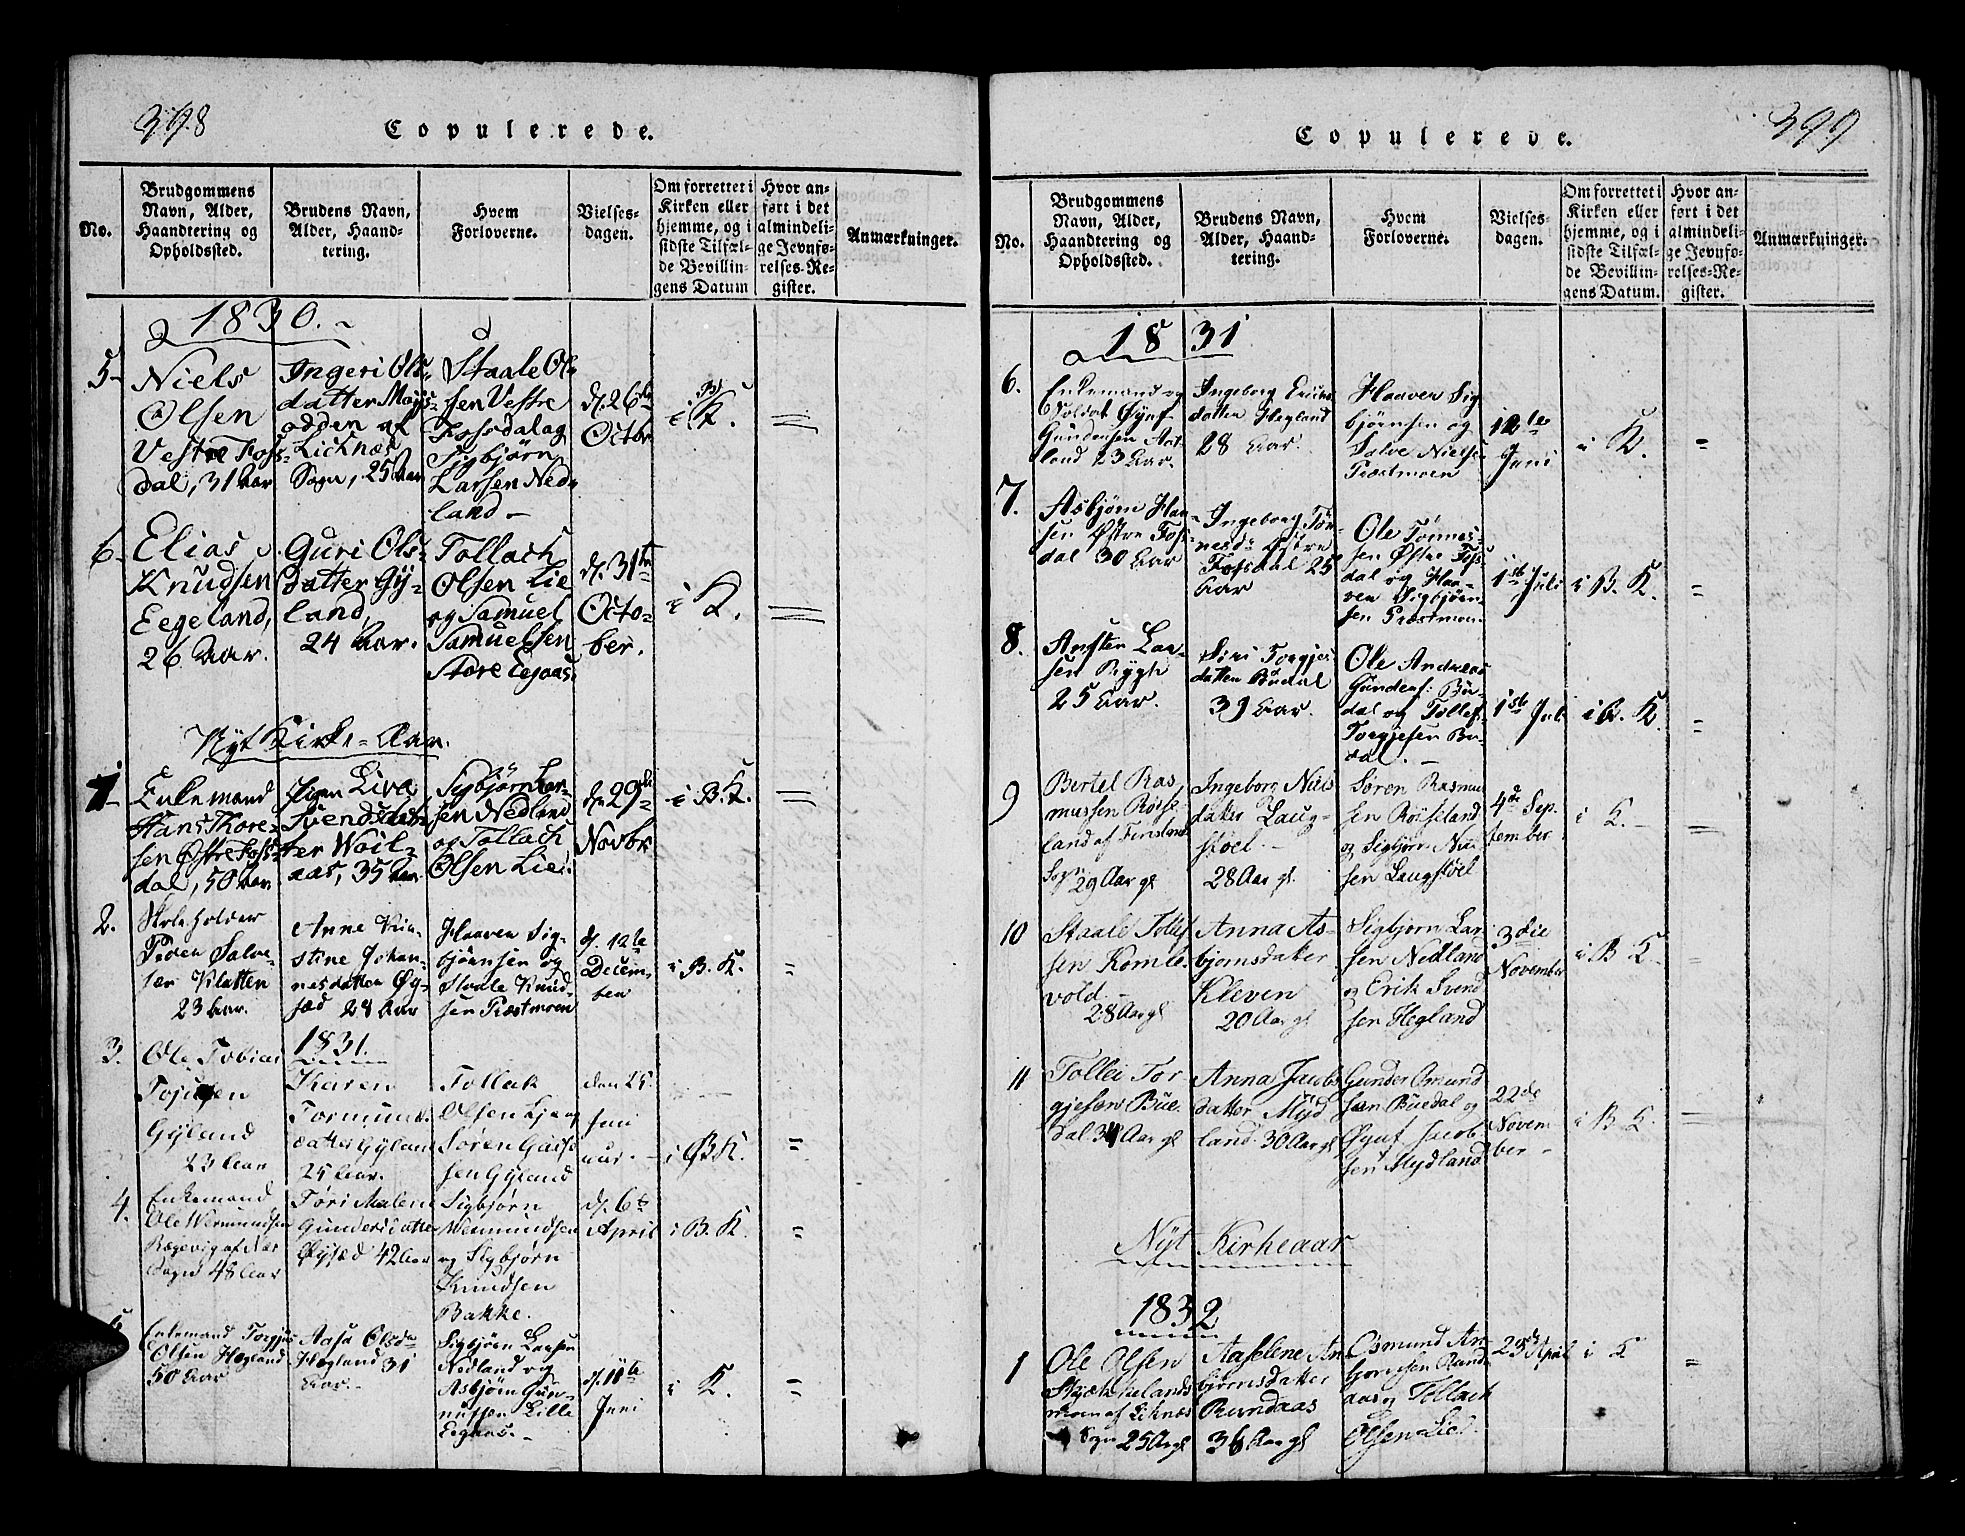 398
Copulerede.
No.
Brudgommens
Navn, Alder,
Haandtering og
Opholdssted.
Brudens Navn,
Alder, Haand-
tering.
Hvem
Forloverne.
Vielses-
dagen.
Om forrettet i
Kirken eller
hjemme, og i
sidste Tilfæl-
de Bevillin-
gens Datum
Hvor an-
ført i det
almindeli-
ge Jevnfø-
relses-Re-
gister.
Anmærkninger.
1830.
5
Niels
Olsen
Vestre Foss-
dal, 31 Aar
Ingeri Ols-
datter
odden af
Licknæs
Sogn, 25 Aar
Staale Ol-
sen Vestre
Fossdal og
Sigbjørn
Larsen Ned-
land
d. 26de
Octbr
i K.
=
6
Elias
Knudsen
Eegeland,
26 Aar.
Guri Ols-
datter Gy-
land,
24 Aar.
Tollach
Olsen Lie
og Samuel
Samuelsen
Store Eegaas.
d. 31te
Octo-
ber.
i K.
=
Nyt Kirke-Aar.
1
Enkemand
Hans Thore-
sen Østre Foss-
dal, 50 Aar
Pigen Liva
Svendsdat-
ter
aas, 35 Aar
Sigbjørn Lar-
sen Nedland
og Tollach
Olsen Lie.
d. 29de
Novbr
i B. K.
=
2.
Skoleholder
Peder Salve-
sen Klatten
23 Aar.
Anne Kir-
stine Johan-
nesdatter Øy-
sæd 28 Aar
Haaver Sig-
bjørnsen og
Staale Knud-
sen Præstmoen
d. 12te
Decem-
ber
i B. K.
=
3.
Ole Tobias
Gyland
23 Aar
1831.
Karen
Tormunds-
datter Gyland
25 Aar.
Tollak
Olsen Lie og
Søren
sen Gyland
den 25
Jan
uar.
i B K.
=
4.
Enkemand
Ole Wermundsen
Rægevig af Næs
Sogn 48 Aar
Tøri Malene
Gundersdatter
Øysæd 42 Aar
Sigbjørn
Wermundsen
og Sigbjørn
Knudsen
Bakke.
d. 6te
April
i B. K.
=
5
Enkemand Torgjus
Olsen Hægland
50 Aar
Aasa Olsda
Hægland 31
Aar.
Sigbjørn Larsen
Nedland og
Asbjørn Gun-
nufsen Lille
Eegaas.
d. 11te
Juni
i K.
=
399
Copulerede.
No.
Brudgommens
Navn, Alder,
Haandtering og
Opholdssted.
Brudens Navn,
Alder, Haand-
tering.
Hvem
Forloverne.
Vielses-
dagen.
Om forrettet i
Kirken eller
hjemme, og i
sidste Tilfæl-
de Bevillin-
gens Datum.
Hvor an-
ført i det
almindeli-
ge Jevnfø-
relses-Re-
gister.
Anmærkninger.
1831
6.
Enkemand og
Soldat Øyuf
Gundersen
land 23 Aar.
Ingeborg Erics-
datter Hegland
28 Aar.
Haaver Sig-
bjørnsen og
Salve Nielsen
Præstmoen
12te
Juni
i K.
=
7.
Asbjørn Han-
sen Østre Fos-
dal 30 Aar
Ingeborg Tøn-
nesdr Østre
Fossdal 25
Aar
Ole Tønnes-
sen Østre Foss-
dal og Haa-
ver Sigbjørn-
sen Præstmoen.
1ste Juli
i B. K.
=
8.
Ansten Lar-
sen Rygh
25 Aar.
Siri Torgjus
datter Budal
39 Aar.
Ole Andreas
Gunders: Bu-
dal og Tollef
Torgjesen Bu-
dal.
1ste Juli
i B. K.
=
9
Bertel Ras-
mussen Røise-
land af Finsland
Sogn
29 Aar gl
Ingeborg Niels
datter Laug-
støel.
28 Aar gl.
Søren Rasmus
sen Røiseland
og Sigbjørn Niel
sen Laugstøel
4de Sep
tember
i K.
=
10
Staale Tollef
sen Komle-
vold
28 Aar gl
Anna As-
bjørnsdatter
Kleven
20 Aar gl
Sigbjørn Lar
sen Nedland
og Erik Svend
sen Hegland
3die
November
i B K.
=
11
Tollei Tor
gjesen Bue-
dal 34 Aar gl
Anna Jacobs
datter Myd
land. 30 Aar gl
Gunder Omund
sen Buedal og
Øyuf Jacob-
sen Mydland
22de
Novem
ber
i B K.
=
Nyt Kirkeaar
1832
1
Ole Olsen
moen af Liknæs
Sogn 25 Aar gl
Aaselene An
bjørnsdatter
Rundaas
36 Aar gl
Osmund An
bjørnsen Rund
aas og Tollack
Olsen Lie.
23de April
i K
=